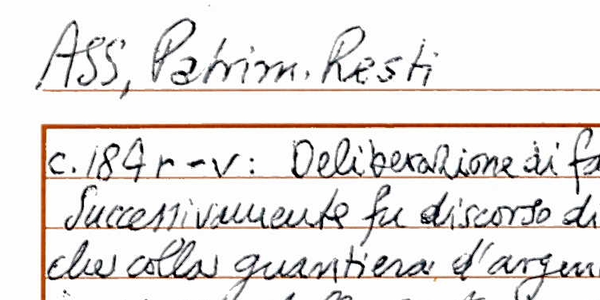 ASS, Patrim. Resti
c. 184 r-v: Deliberazione di fa
Successivamente fu discorso di
che colla guantiera d'argen